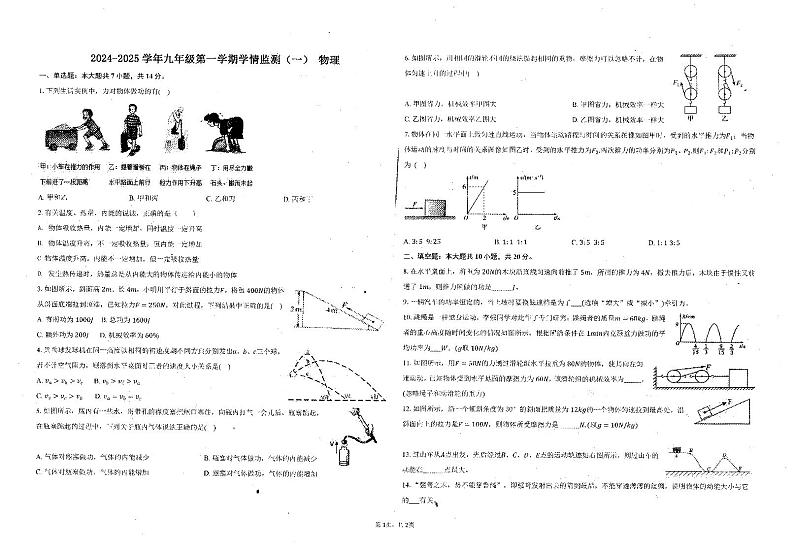 2024-2025 学年九年级第一学期学情监测（一） 物理
一、单选题：本大题共 7 小题，共 14 分。
1. 下列生活实例中，力对物体做功的有( )
甲：小车在推力的作用 乙：提着滑板在 丙：物体在绳子 丁：用尽全力搬
下前进了一段距离 水平路面上前行 拉力作用下升高 石头，搬而未起
A. 甲和乙 B. 甲和丙 C. 乙和丙 D. 丙和丁
2. 有关温度、热量、内能的说法，正确的是（ ）
A. 物体吸收热量，内能一定增加，同时温度一定升高
B. 物体温度升高，不一定吸收热量，但内能一定增加
C. 物体温度升高，内能不一定增加，但一定吸收热量
D. 发生热传递时，热量总是从内能大的物体传递给内能小的物体
3. 如图所示，斜面高2m，长4m，小明用平行于斜面的拉力F，将重400N的物体
从斜面底端拉到顶端，已知拉力F = 250N，对此过程，下列结果中正确的是( )
A. 有用功为 1000J B. 总功为 1600J
C. 额外功为 200J D. 机械效率为 60%
2m
4m
F
A. v_a > v_b > v_c B. v_b > v_c > v_a
C. v_c > v_b > v_a D. v_a = v_b = v_c
5. 如图所示，瓶内有一些水，用带孔的橡皮塞把瓶口塞住，向瓶内打气一会儿后，瓶塞跳起，
在瓶塞跳起的过程中，下列关于瓶内气体说法正确的是( )
A. 气体对瓶塞做功，气体的内能减少 B. 瓶塞对气体做功，气体的内能减少
C. 气体对瓶塞做功，气体的内能增加 D. 瓶塞对气体做功，气体的内能增加
6. 如图所示，用相同的滑轮不同的绕法提起相同的重物，摩擦力可以忽略不计，在物
体匀速上升的过程中( )
A. 甲图省力，机械效率甲图大 B. 甲图省力，机械效率一样大
C. 乙图省力，机械效率乙图大 D. 乙图省力，机械效率一样大
甲 乙
7. 物体在同一水平面上做匀速直线运动，当物体运动路程与时间的关系图像如图甲时，受到的水平推力为F₁；当物
体运动的速度与时间的关系图像如图乙时，受到的水平推力为F₂.两次推力的功率分别为P₁、P₂.则F₁:F₂和P₁:P₂分别
为（ ）
F
s/m
6
0 2 t/s
甲
v(m·s⁻¹)
5
0 t/s
乙
A. 3:5 9:25 B. 1:1 1:1 C. 3:5 3:5 D. 1:1 3:5
二、填空题：本大题共 10 小题，共 20 分。
8. 在水平桌面上，用力为20N的木块沿直线匀速向前推了 5m，所用的推力为 4N，撤去推力后，木块由于惯性又前
进了 1m，则推力所做的功是______J。
9. 一辆汽车的功率恒定的，当上坡时要换低速挡是为了___(选填“增大”或“减小”)牵引力。
10. 跳绳是一种健身运动，李强同学对此作了专门研究：跳绳者的质量m = 60kg，跳绳
者的重心高度随时间变化的情况如图所示，根据所给条件在 1min内克服重力做功的平
均功率为___W。(g取 10N/kg)
11. 如图所示，用F = 50N的力通过滑轮组水平拉重为 80N的物体，使其向左匀
速运动，已知物体受到水平地面的摩擦力为 60N，该滑轮组的机械效率为____。
(忽略绳子和动滑轮的重力)
12. 如图所示，沿一个倾斜角度为 30° 的斜面把质量为 12kg的一个物体匀速拉到最高处，沿
斜面向上的拉力是F = 100N，则物体所受摩擦力是______N.(取g = 10N/kg)
13. 过山车从A点出发，先后经过B、C、D、E点的运动轨迹如右图所示，则过山车的
动能在______点最大。
14. “强弩之末，势不能穿鲁缟”，即强弩发射出去的箭到最后，不能穿透薄薄的红绸，说明物体的动能大小与它
的___有关。